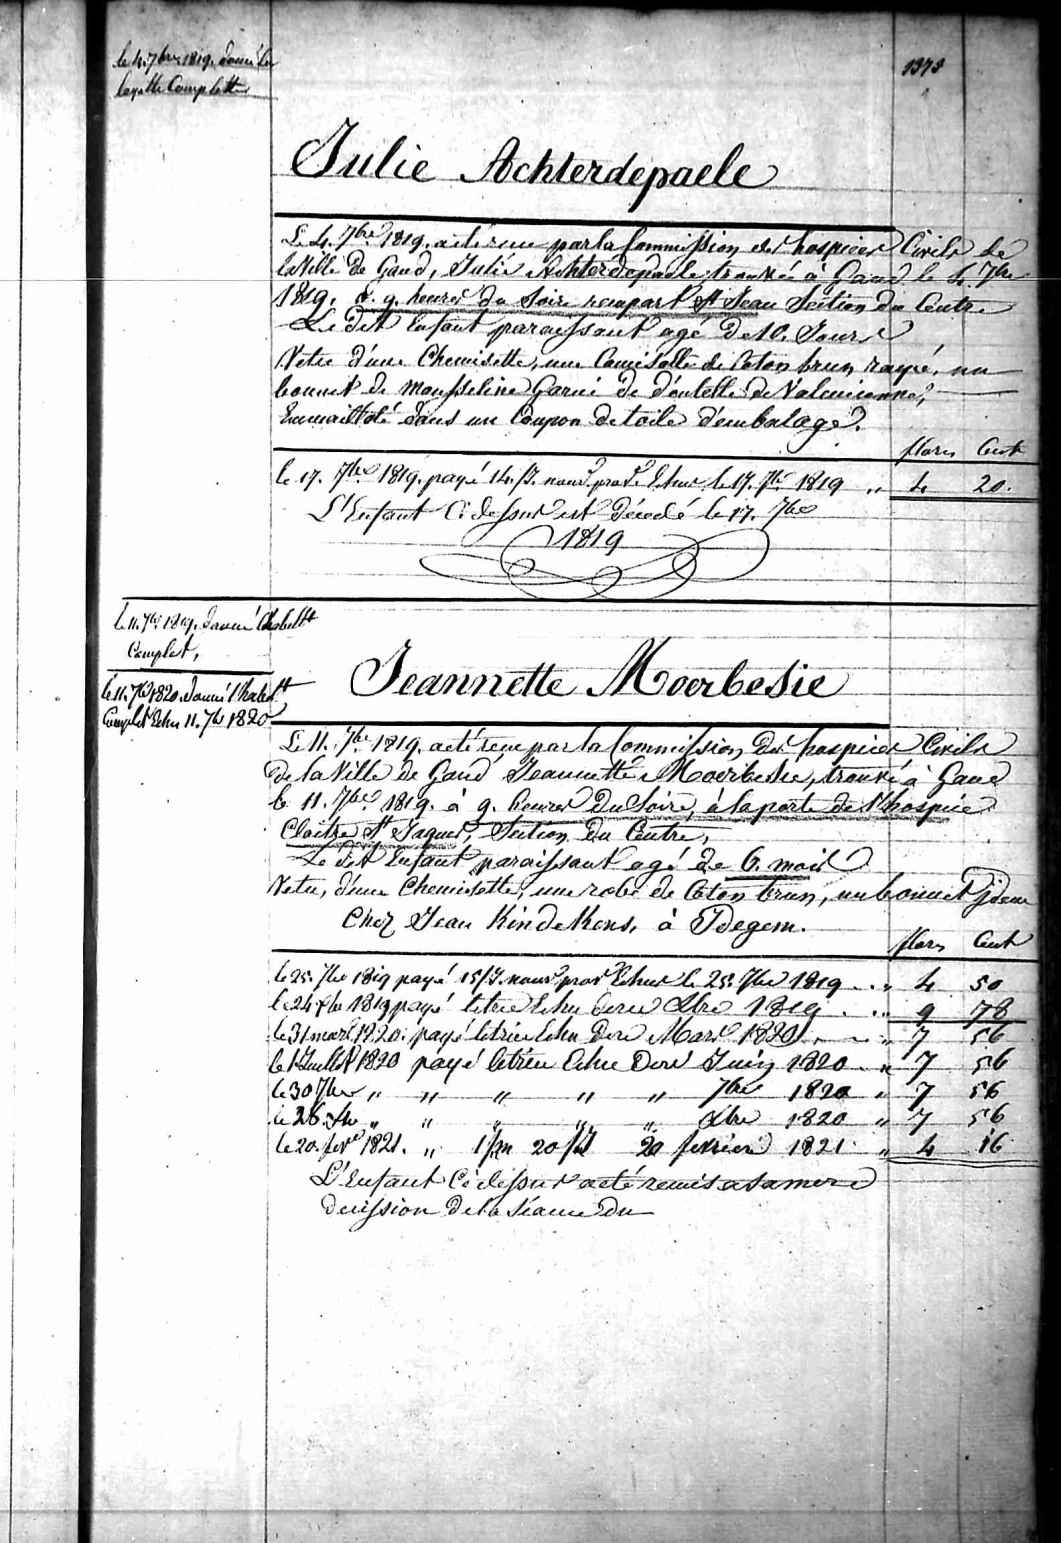 le 4. 7bre 1819. donné la
layette Complette
1373
Julie Achterdepaele
Le 4. 7bre 1819. a été reçue par la Commission des hospices Civils de
la Ville de Gand, Julie Achterdepaele, trouvée à Gand le 4. 7bre
1819. à 9. heures du Soire rempart St Jean Section du Centre
Le dit Enfant paraissant agé de 10. Jours
Vetue d'une Chemisette, une Camisolle de Coton brun rayé, un
bonnet de mousseline Garni de d'entelle de Valencienne,
Emmailloté dans un Coupon de toile d'embalage.
flors Cent
le 17. 7bre 1819. payé 14/J. nour.e prov.e Echue le 17. 7bre 1819 „ 4 20.
L'Enfant Ci dessus est Décedé le 17. 7bre
1819
le 11. 7bre 1819. donné l'habillt
Complet,
le 11. 7bre 1820. donné l'habillt
Complet Echu 11. 7bre 1820
Jeannette Moerbesie
Le 11. 7bre 1819. a été reçue par la Commission des hospices Civils
de la Ville de Gand Jeannette Moerbesie, trouvée à Gand
le 11. 7bre 1819. à 9. heures du Soire, à la porte de l'hospice
Cloître St Jaques, Section du Centre,
Le dit Enfant paraissant agé de 6. mois
Vetue, d'une Chemisette, une robe de Coton brun, un bonnet Idem
Chez Jean Kindekens, à Idegem.
flors Cent
le 25. 7bre 1819 payé 15/J. nour.e prov.e Echue le 25. 7bre 1819 „ 4 50
le 24 Xbre 1819 payé letrim Echu dern Xbre 1819 „ 9 78
le 31 mars 1820. payé letrim Echu Dern Mars 1820 „ 7 56
le 1 Juillet 1820 payé letrim Echu Dern Juin 1820 „ 7 56
le 30 7bre „ „ „ „ „ 7bre 1820 „ 7 56
le 26 Xbre „ „ „ „ „ Xbre 1820 „ 7 56
le 20. fevr 1821. „ 1/m 20/J 20 fevrier 1821 „ 4 16
L'Enfant Ci dessus a été remis a sa mere
decission de la séance du